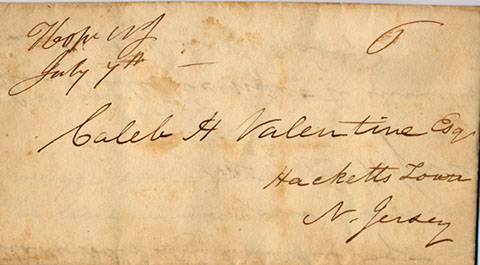 Hope NJ
July 7th —
Caleb H Valentine Esq
Hacketts Town
N. Jersey